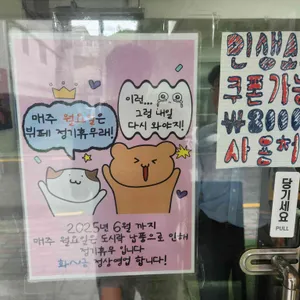 매주 월요일은
뷔페 정기휴무래!
이런...
그럼 내일
다시 와야지!
2025년 6월 까지
매주 월요일은 도시락 납품으로 인해
정기휴무 입니다
화~금 정상영업 합니다!
쿠폰가
₩8000
사용처
당기세요
PULL